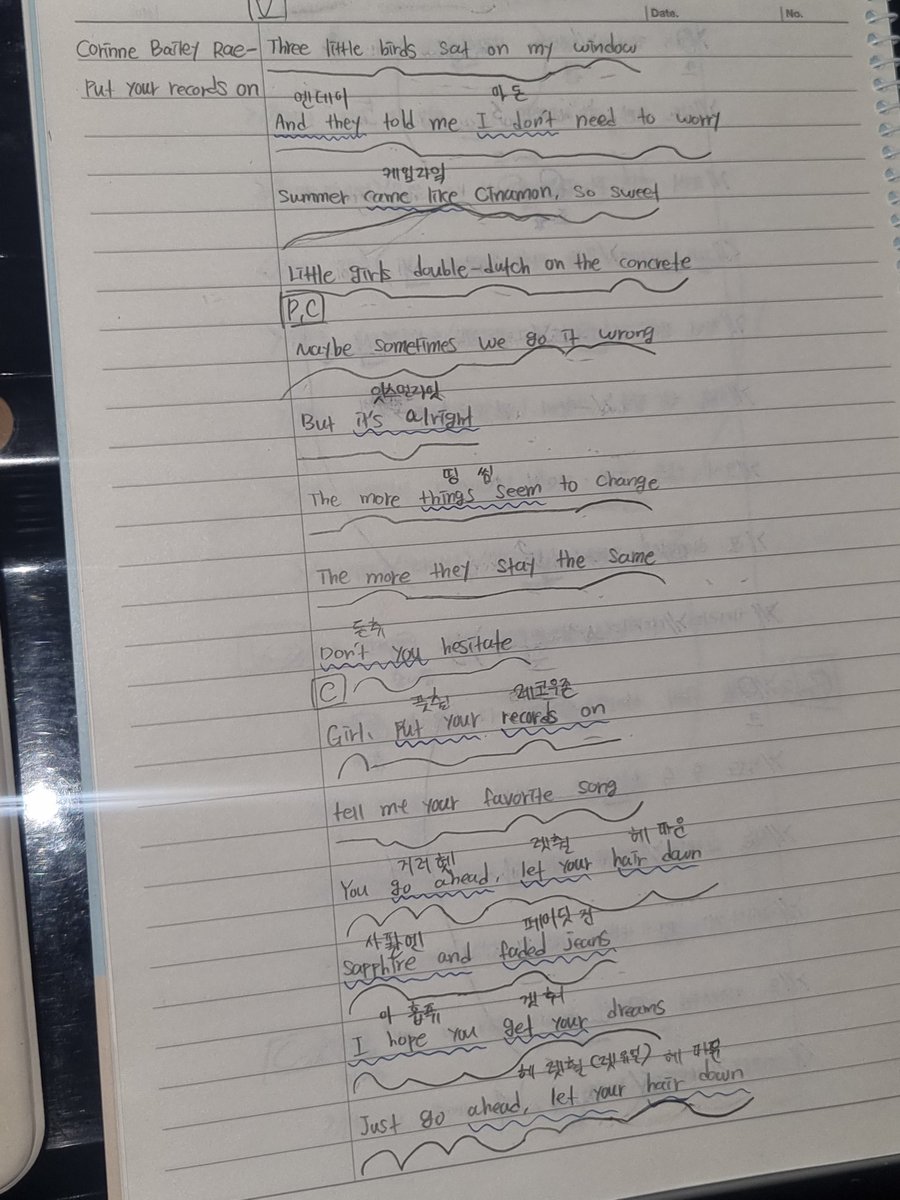 V
Date.
No.
Corinne Bailey Rae-
Put your records on
Three little birds sat on my window
엔데이 아 돈
And they told me I don't need to worry
케임라잌
Summer came like cinamon, so sweet
Little girls double-dutch on the concrete
P,C
Maybe sometimes we go it wrong
잇스얼라잇
But it's alright
띵 씸
The more things seem to change
The more they stay the same
돈츄
Don't you hesitate
C
레코우존
Girl, put your records on
tell me your favorite song
렛춸 헤 따운
You go ahead, let your hair down
페이딧 진
Sapphire and faded jeans
아 홉쥬 겟춰
I hope you get your dreams
헤 렛춸 (렛유월) 헤 따운
Just go ahead, let your hair down